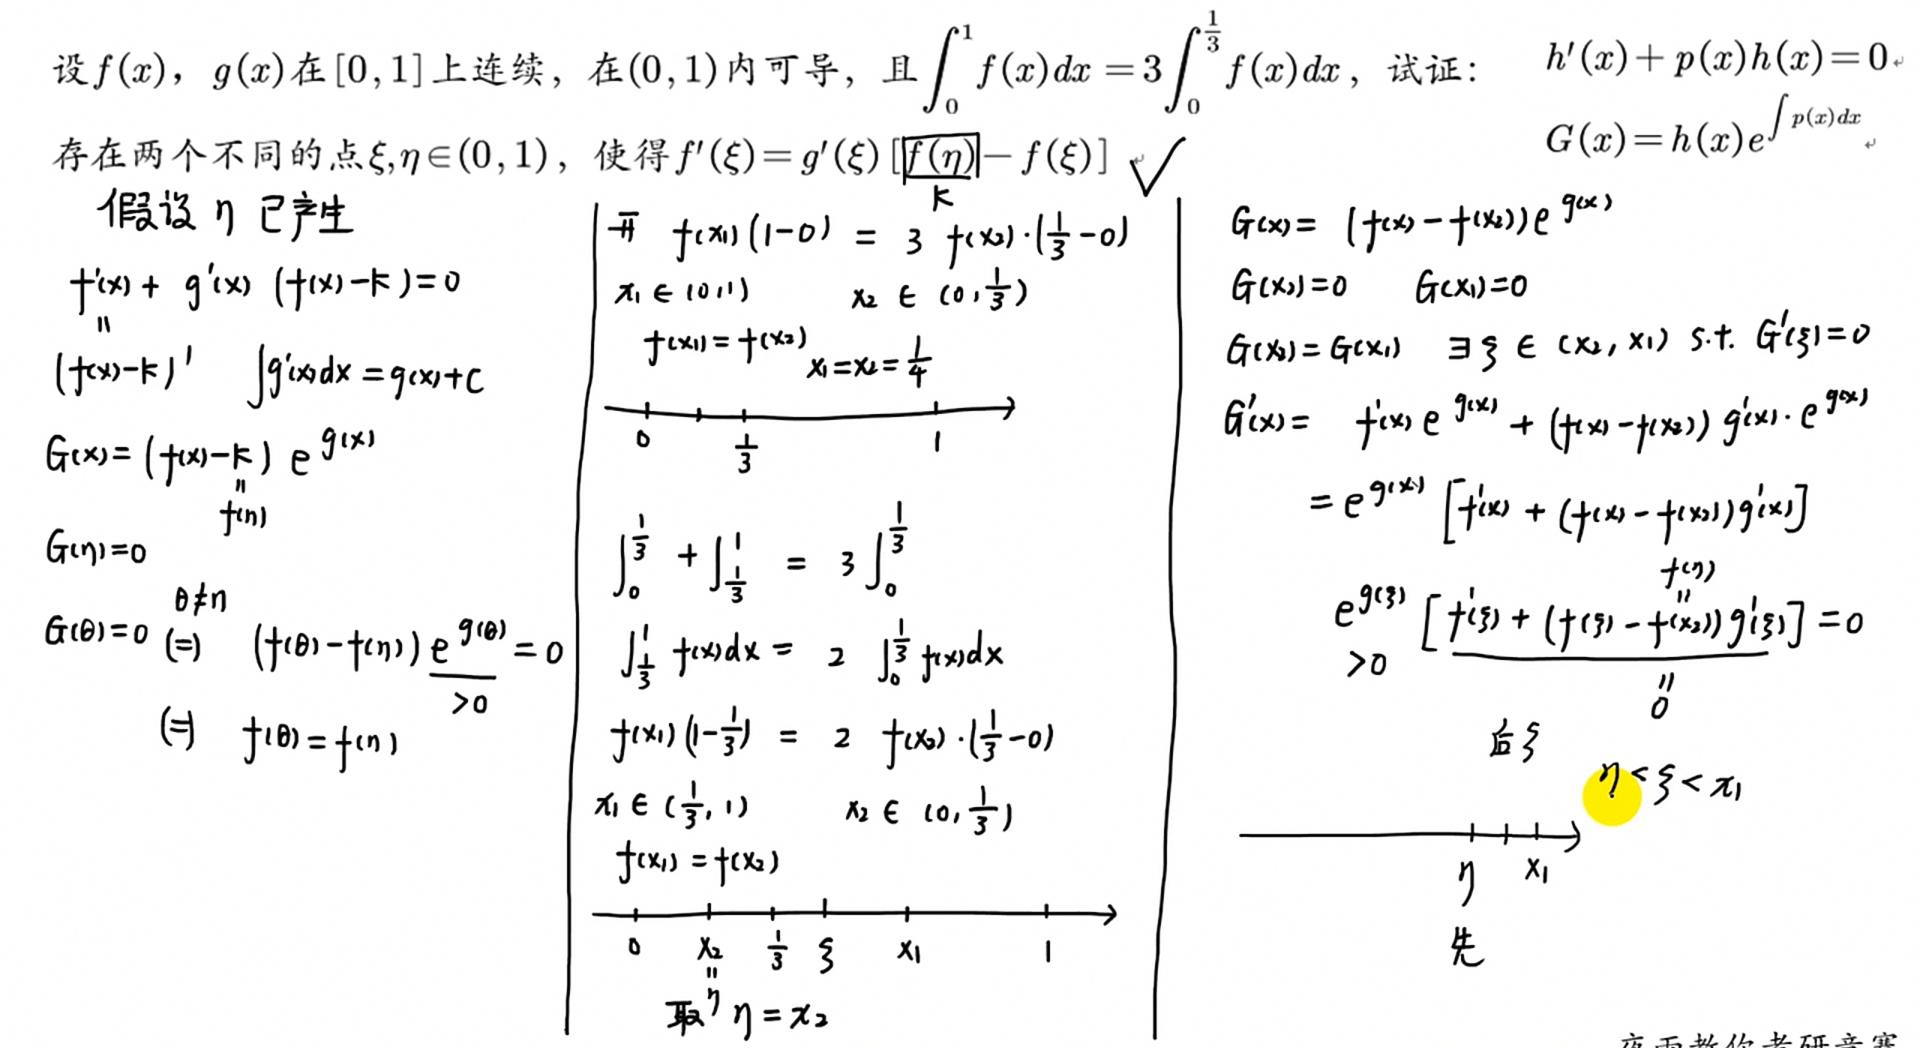 设f(x)，g(x)在[0,1]上连续，在(0,1)内可导，且∫₀¹f(x)dx=3∫₀^{1/3}f(x)dx，试证：
存在两个不同的点ξ,η∈(0,1)，使得f′(ξ)=g′(ξ)[f(η)−f(ξ)] ✓
k
h′(x)+p(x)h(x)=0
G(x)=h(x)e^{∫p(x)dx}
假设 η 已产生
f′(x)+ g′(x) (f(x)-k)=0
"
(f(x)-k)′ ∫g′(x)dx=g(x)+C
G(x)=(f(x)-k) e^{g(x)}
"
f(η)
G(η)=0
θ≠η
G(θ)=0 (=) (f(θ)-f(η)) e^{g(θ)}=0
>0
(=) f(θ)=f(η)
f(x₁)(1-0) = 3 f(x₂)·(1/3-0)
x₁∈(0,1) x₂∈(0,1/3)
f(x₁)=f(x₂)
x₁=x₂=1/4
0 1/3 1
∫₀^{1/3} + ∫_{1/3}^1 = 3∫₀^{1/3}
∫_{1/3}^1 f(x)dx = 2 ∫₀^{1/3} f(x)dx
f(x₁)(1-1/3) = 2 f(x₂)·(1/3-0)
x₁∈(1/3,1) x₂∈(0,1/3)
f(x₁)=f(x₂)
0 x₂ 1/3 ξ x₁ 1
"
η
取 η=x₂
G(x)= (f(x)-f(x₂))e^{g(x)}
G(x₂)=0 G(x₁)=0
G(x₂)=G(x₁) ∃ξ∈(x₂,x₁) s.t. G′(ξ)=0
G′(x)= f′(x)e^{g(x)}+(f(x)-f(x₂))g′(x)·e^{g(x)}
=e^{g(x)}[f′(x)+(f(x)-f(x₂))g′(x)]
f(η)
"
e^{g(ξ)}[f′(ξ)+(f(ξ)-f(x₂))g′(ξ)]=0
>0
"
0
后ξ
η<ξ<x₁
η x₁
先